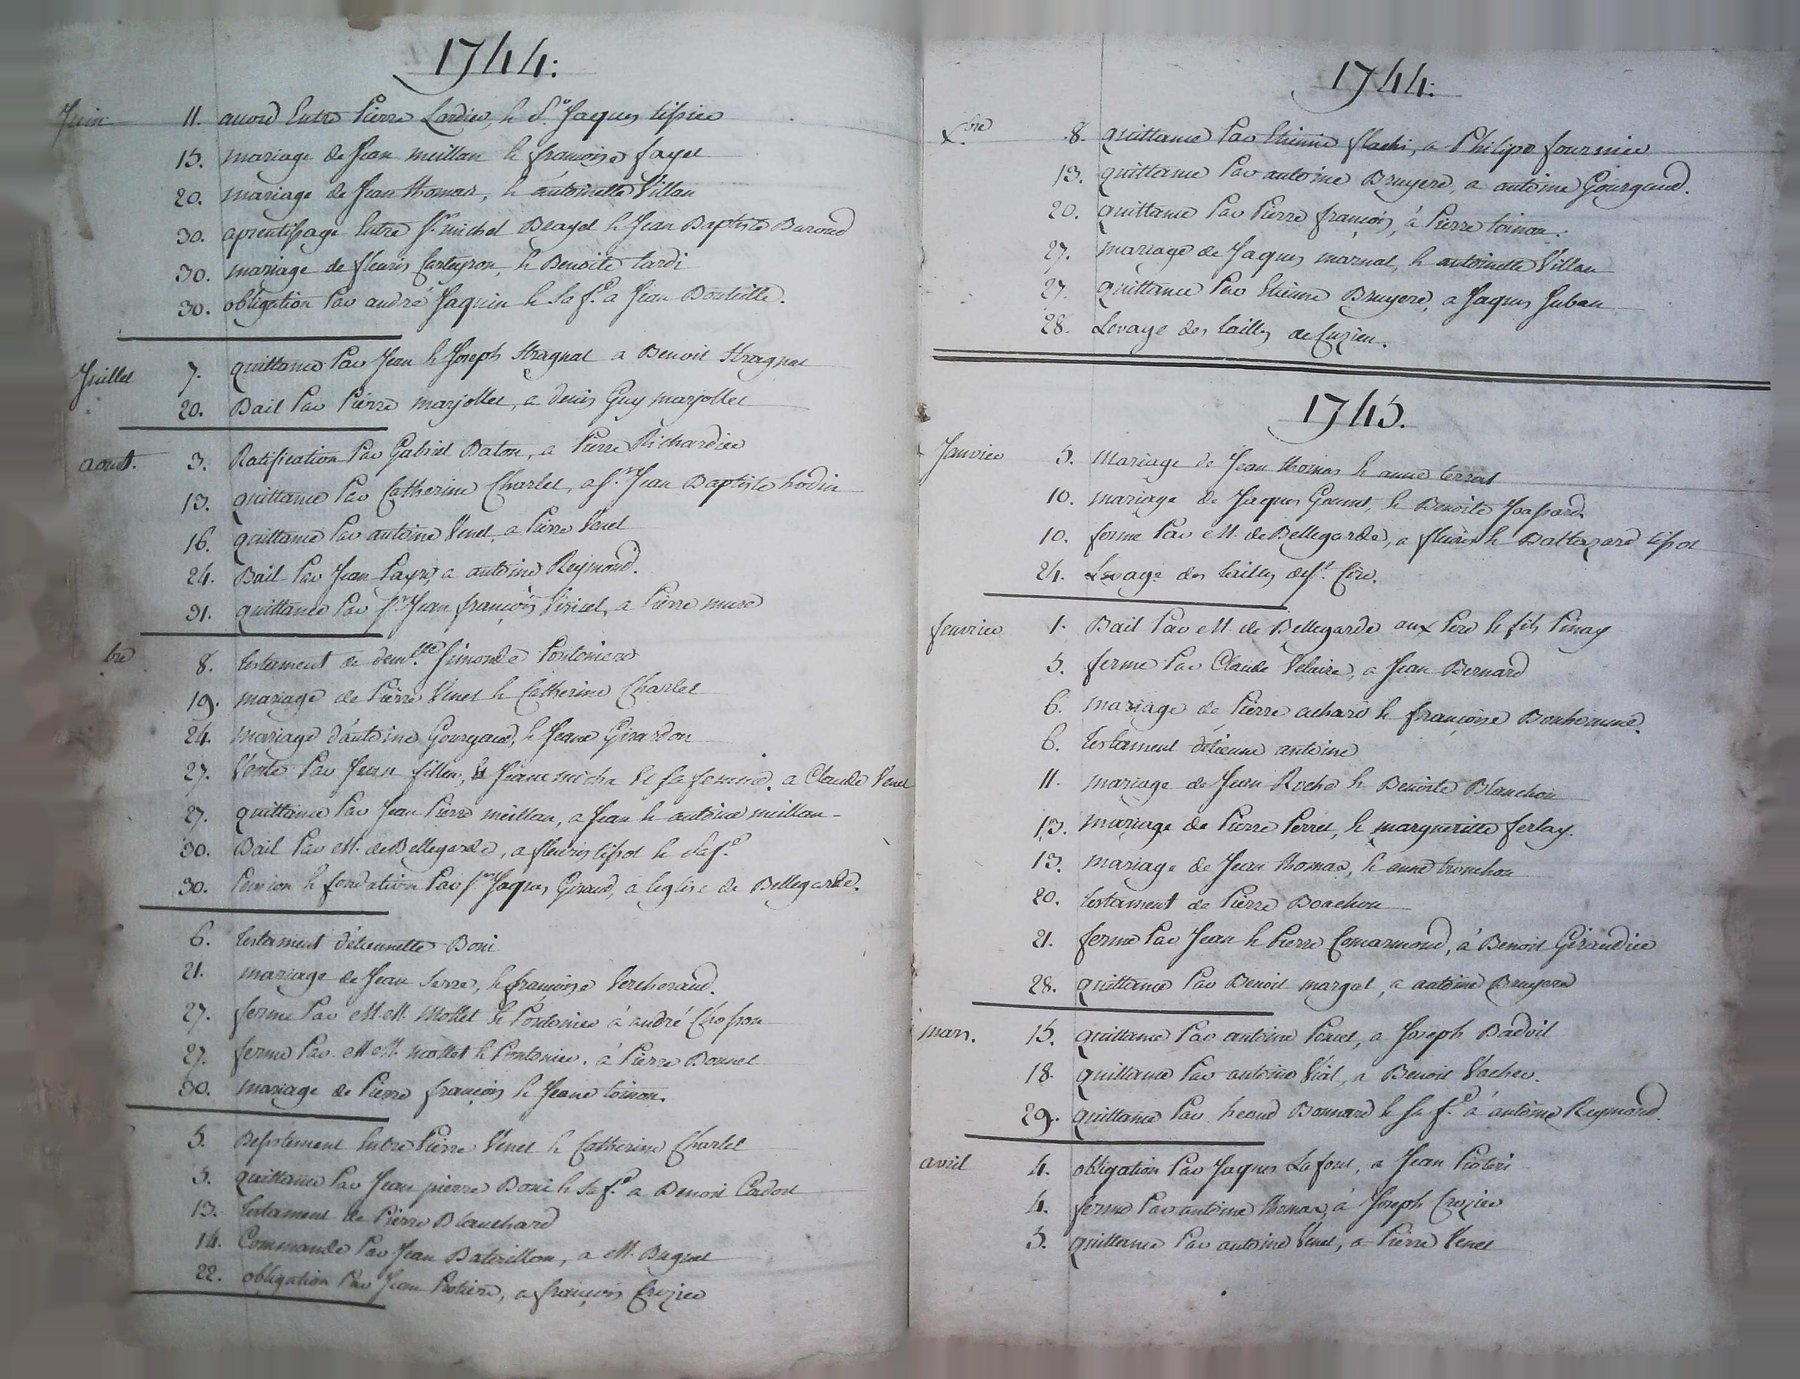 1744:
Juin 11. accord Entre Pierre Lardier, & Sr Jaques tissier
15. mariage de Jean meillan & françoise fayet
20. mariage de Jean thomas, & antoinette Villan
30. aprentissage Entre Sr michel Blayet & Jean Baptiste Baroud
30. mariage de fleuris Carteyron, & Benoite tardi
30. obligation Par andré Jaquin & Sa fe a Jean Bouteille.
Juillet 7. quittance Par Jean & Joseph Stragnat a Benoit Stragnat
20. Bail Par Pierre marjollet, a denis Guy marjollet
aoust. 3. Ratification Par Gabriel Baton, a Pierre Richardier
13. quittance Par Catherine Charlet, a Sr. Jean Baptiste hodin
16. quittance Par antoine Venet, a Pierre Venet
24. Bail Par Jean Payre, a antoine Reymond.
31. quittance Par Sr Jean françois Viricel, a Pierre mure
bre 8. testament de demlle Simonde Pontoniere
19. mariage de Pierre Venet & Catherine Charlet
24. mariage d'antoine Gourgaud, & Jeane Girardon
27. Vente Par Jean fillen, Jeane micha Sa femme, a Claude Venet
27. quittance Par Jean Pierre meillan, a Jean & antoine meillan
30. Bail Par M. de Bellegarde, a fleuris tissot & Sa fe
30. Pension & fondation Par Sr Jaques Giraud, a leglise de Bellegarde.
6. testament d'étiennette Boni
21. mariage de Jean Serre, & françoise Vercherand.
27. ferme Par M.M. Mottet & Pontonier à andré Chosson
27. ferme Par M.M. mottet & Pontonier. à Pierre Bonnet
30. mariage de Pierre françois & Jeane toinon.
5. Desistement Entre Pierre Venet & Catherine Charlet
5. quittance Par Jean pierre Boni & Sa fe a Benoit Cadost
13. testament de Pierre Blanchard
14. Commande Par Jean Baterillon, a M. Bugnet
22. obligation Par Jean Protiere, a françois Crozier
1744:
X.bre 8. quittance Par Etienne flachi, a Philipe fournier
13. quittance Par antoine Bruyere, a antoine Gourgaud.
20. quittance Par Pierre françois, à Pierre toinon.
27. mariage de Jaques marnat, & antoinette Villan
27. quittance Par Etienne Bruyere, a Jaques Juban
28. Levage des tailles de Cuzieu.
1745.
Janvier 5. Mariage de Jean thomas & anne terrat
10. mariage de Jaques Gounet, & Benoite
10. ferme Par M. de Bellegarde, a fleuris & Baltazard tissot
24. Levage des tailles de St. Cire.
feuvrier 1. Bail Par M. de Bellegarde aux Pere & fils Pinay
5. ferme Par Claude Velaire, a Jean Bernard
6. mariage de Pierre achard & françoise Bonhomme.
6. testament d'étienne antoine
11. mariage de Jean Roche & Benoite Blanchon
13. mariage de Pierre Perret, & margueritte ferlay.
13. mariage de Jean thomas, & anne tronchon
20. testament de Pierre Boachon
21. ferme Par Jean & Pierre Comarmond, à Benoit Giraudier
28. quittance Par Benoit margot, a antoine Bruyere
mars. 15. quittance Par antoine Poncet, a Joseph Badoil
18. quittance Par antoine Vial, a Benoit Vacher.
29. quittance Par Bonnard & Sa fe à antoine Reymond.
avril 4. obligation Par Jaques Lafont, a Jean Protieri
4. ferme Par antoine thomas, à Joseph Crozier
5. quittance Par antoine Venet, a Pierre Venet